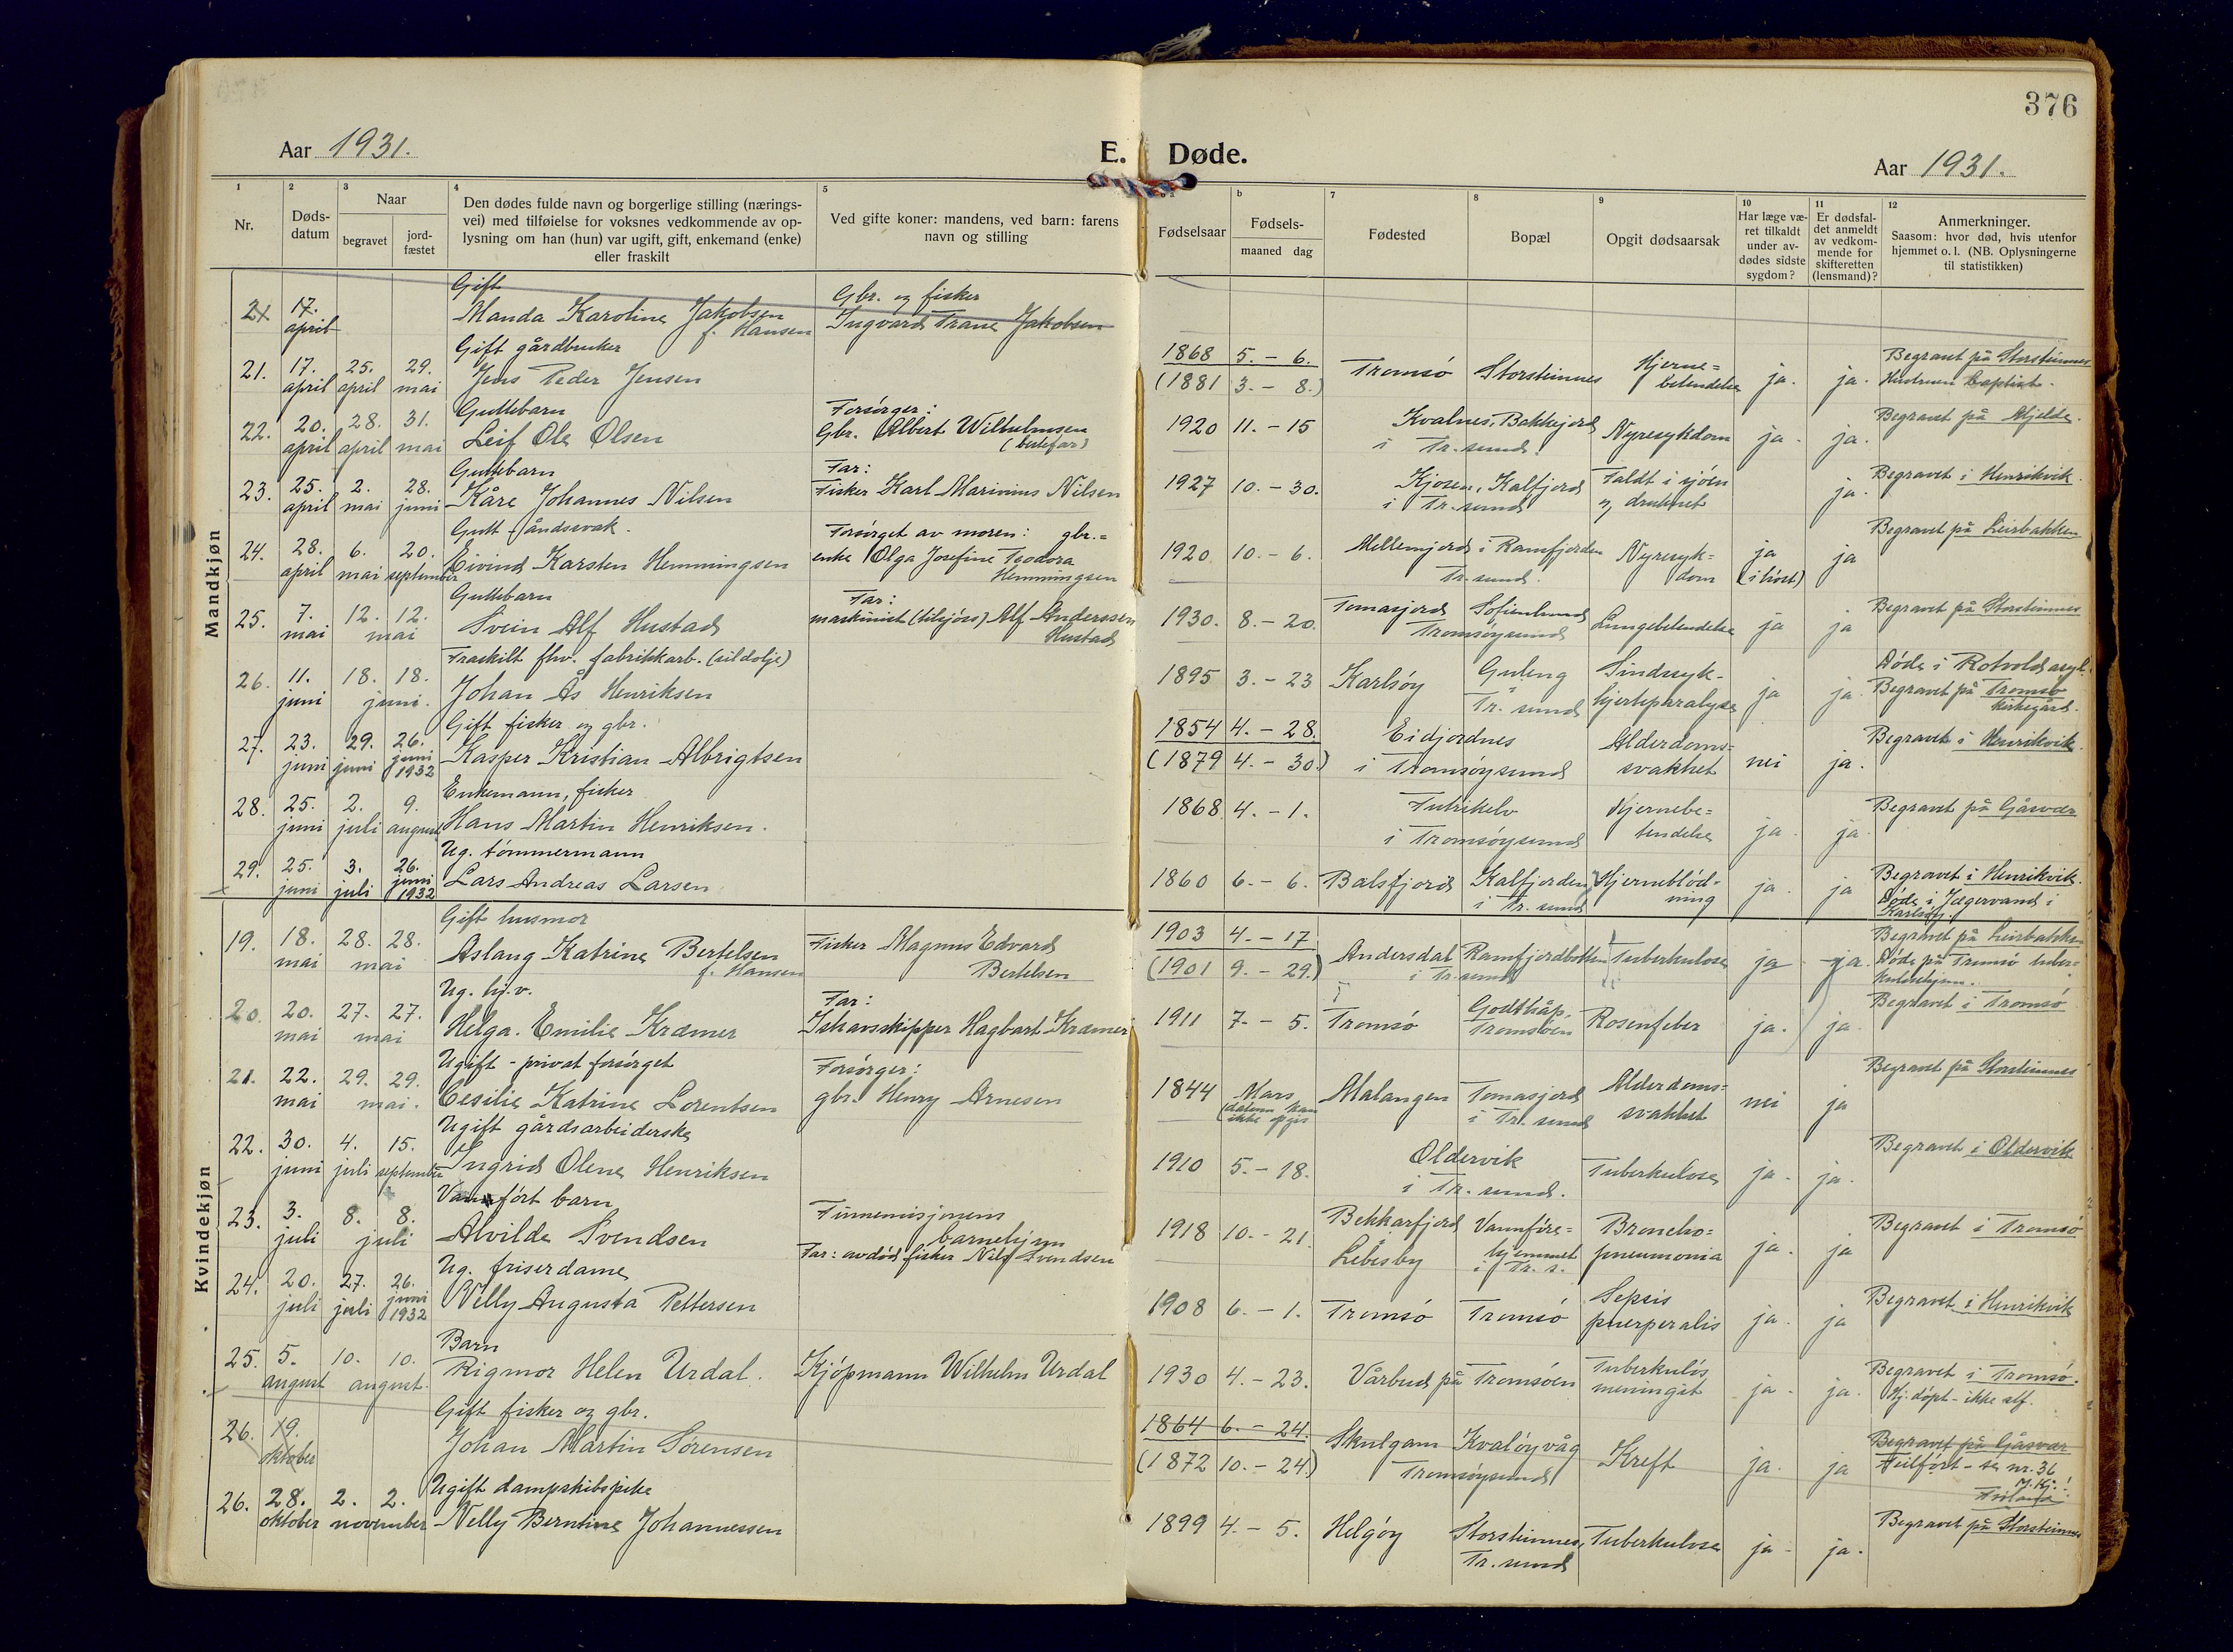 376
Aar 1931.
E. Døde.
Aar 1931.
1
Nr.
2
Døds-
datum
3
Naar
begravet
jord-
fæstet
4
Den dødes fulde navn og borgerlige stilling (nærings-
vei) med tilføielse for voksnes vedkommende av op-
lysning om han (hun) var ugift, gift, enkemand (enke)
eller fraskilt
5
Ved gifte koner: mandens, ved barn: farens
navn og stilling
Fødselsaar
b
Fødsels-
maaned dag
7
Fødested
8
Bopæl
9
Opgit dødsaarsak
10
Har læge væ-
ret tilkaldt
under av-
dødes sidste
sygdom?
11
Er dødsfal-
det anmeldt
av vedkom-
mende for
skifteretten
(lensmand)?
12
Anmerkninger.
Saasom: hvor død, hvis utenfor
hjemmet o. l. (NB. Oplysningerne
til statistikken)
Mandkjøn
21 17. april
Gift
Manda Karoline Jakobsen
f. Hansen
Gbr. og fisker
Ingvard Trane Jakobsen
21. 17. april 25. april 29. mai
Gift gårdbruker
Jens Peder Jensen
1868 5. - 6.
(1881 3. - 8.)
Tromsö Storsteinnes
Hjerne=
betendelse
ja. ja.
Begravet på Storsteinnes
Hustruen baptist.
22. 20. april 28. april 31. mai
Guttebarn
Leif Ole Olsen
Forsörger:
Gbr. Albert Wilhelmsen
1920 11. - 15
Kvalnes, Bakkejord
i Tr.sund.
Nyresykdom
ja. ja.
Begravet på Mjelde.
23. 25. april 2. mai 28. juni
Guttebarn
Kåre Johannes Nilsen
Far:
Fisker Karl Marinius Nilsen
1927 10. - 30.
Kjosen, Kalfjord
i Tr. sund
Faldt i sjöen
og druknet
ja.
Begravet i Henrikvik.
24. 28. april 6. mai 20. september
Gutt - åndssvak.
Eivind Karsten Hemmingsen
Forsörget av moren: gbr.=
enke Olga Josefine Teodora
Hemmingsen
1920 10. - 6.
Mellemjord i Ramfjorden
Tr.sund.
Nyresyk=
dom
ja
(i höst)
ja
Begravet på Leirbakken
25. 7. mai 12. 12. mai
Guttebarn
Svein Alf Hustad
Far:
maskinist (tilsjös) Alf Anderssen
Hustad
1930. 8. - 20.
Tomasjord Sofienlund
Tromsöysund
Lungebetendelse
ja ja
Begravet på Storsteinnes
26. 11. juni 18. 18. juni.
Fraskilt fhv. fabrikkarb. (sildolje)
Johan Ås Henriksen
1895 3. - 23
Karlsöy
Guleng
Tr. sund
Sindssyk-
hjerteparalyse
ja ja.
Döde i Rotvold asyl.
Begravet på Tromsö
kirkegård.
27. 23. juni 29. juni 26. juni 1932
Gift fisker og gbr.
Kasper Kristian Albrigtsen
1854 4. - 28.
(1879 4. - 30.)
Eidjordnes
i Tromsöysund
Alderdoms=
svakhet
nei ja.
Begravet i Henrikvik.
28. 25. juni 2. juli 9. august
Enkemann, fisker
Hans Martin Henriksen.
1868 4. - 1.
i Tromsöysund
Hjernebe=
tendelse
ja. ja.
Begravet på Gåsvær
29. 25. juni 3. juli 26. juni 1932
Ug. tömmermann
Lars Andreas Larsen
1860 6. - 6.
Balsfjord Kalfjorden
i Tr. sund
Hjerneblöd-
ning
ja. ja
Begravet i Henrikvik.
Döde i Jægervand i
Karlsöy.
Kvindekjøn
19. 18. mai 28. 28. mai
Gift husmor
Aslaug Katrine Bertelsen
f. Hansen
Fisker Magnus Edvard
Bertelsen
1903 4. - 17
(1901 9. - 29.)
Andersdal Ramfjordbotten
i Tr.sund
Tuberkulose
ja ja.
Begravet på Leirbakken
Döde på Tromsö tuber=
kulosehjem.
20. 20. mai 27. 27. mai
Ug. hj.v.
Helga Emilie Kræmer
Far:
Ishavsskipper Hagbart Kræmer
1911 7. - 5.
Tromsö
Godthåp,
Tromsöen
Rosenfeber
ja. ja
Begravet i Tromsö
21. 22. mai 29. 29. mai.
Ugift - privat forsörget
Cesilie Katrine Lorentsen
Forsörger:
gbr. Henry Arnesen
1844 Mars
(datum kan
ikke opgis
Malangen
Tomasjord
i Tr. sund
Alderdoms=
svakhet
nei ja
Begravet på Storsteinnes
22. 30. juni 4. juli 15. september
Ugift gårdsarbeiderske
Ingrid Olene Henriksen
1910 5. - 18.
Oldervik
i Tr. sund.
Tuberkulose
ja. ja.
Begravet i Oldervik
23. 3. juli 8. 8. juli
Vanfört barn
Alvilde Svendsen
Finnemisjonens
barnehjem
Far: avdöd fisker Nils Svendsen
1918 10. - 21.
Bekkarfjord
Lebesby
Vannföre=
hjemmet
i Tr. s.
Broncho=
pneumonia
ja. ja
Begravet i Tromsö
24. 20. juli 27. juli 26. juni 1932
Ug. friserdame
Nelly Augusta Pettersen
1908 6. - 1.
Tromsö Tromsö
Sepsis
puerperalis
ja. ja
Begravet i Henrikvik
25. 5. august 10. 10. august.
Barn
Rigmor Helen Urdal.
Kjöpmann Wilhelm Urdal
1930 4. - 23.
Vårbud på Tromsöen
Tuberkulös
meningit
ja. ja.
Begravet i Tromsö.
Hj. döpt - ikke stf.
26. 19. oktober
Gift fisker og gbr.
Johan Martin Sörensen
1864 6. - 24.
(1872 10. - 24.)
Skulgam Kvalöyvåg
Tromsöysund
Kreft
ja. ja
Begravet på Gåsvær
Feilfört - se nr. 36
26. 28. oktober 2. 2. november
Ugift dampskibspike
Nelly Berntine Johannessen
1899 4. - 5.
Helgöy
Storsteinnes,
Tr. sund
Tuberkulose
ja. ja.
Begravet på Storsteinnes